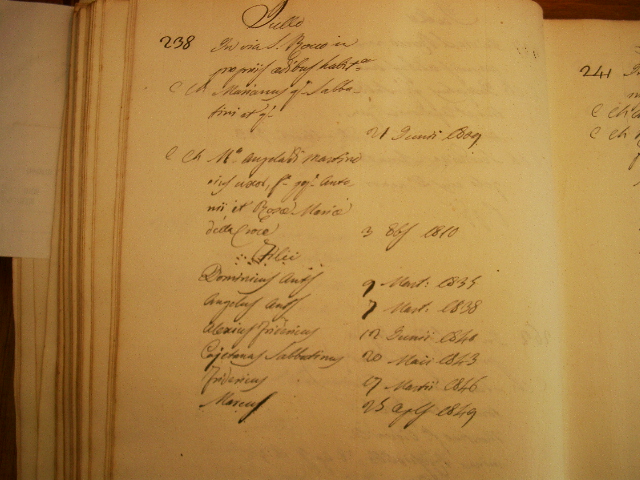 Lullo
238 In via S. Rocco in
propriis ædibus habit.
C Ch Marianus q. Sabba-
tini et q.
21 Junii 1809
C Ch M.a Angela Martine
ejus uxor, f. q. Anto-
nii et Rosæ Mariæ
della Croce 3 1810
Filii
Dominicus Ant. 9 Mart. 1835
Angelus Ant. 7 Mart. 1838
Alexius Fridericus 12 Junii 1840
Cajetanus Sabbatinus 20 Maii 1843
Fridericus 17 Martii 1846
Marcus 25 Aplis 1849
241
C Ch
C Ch